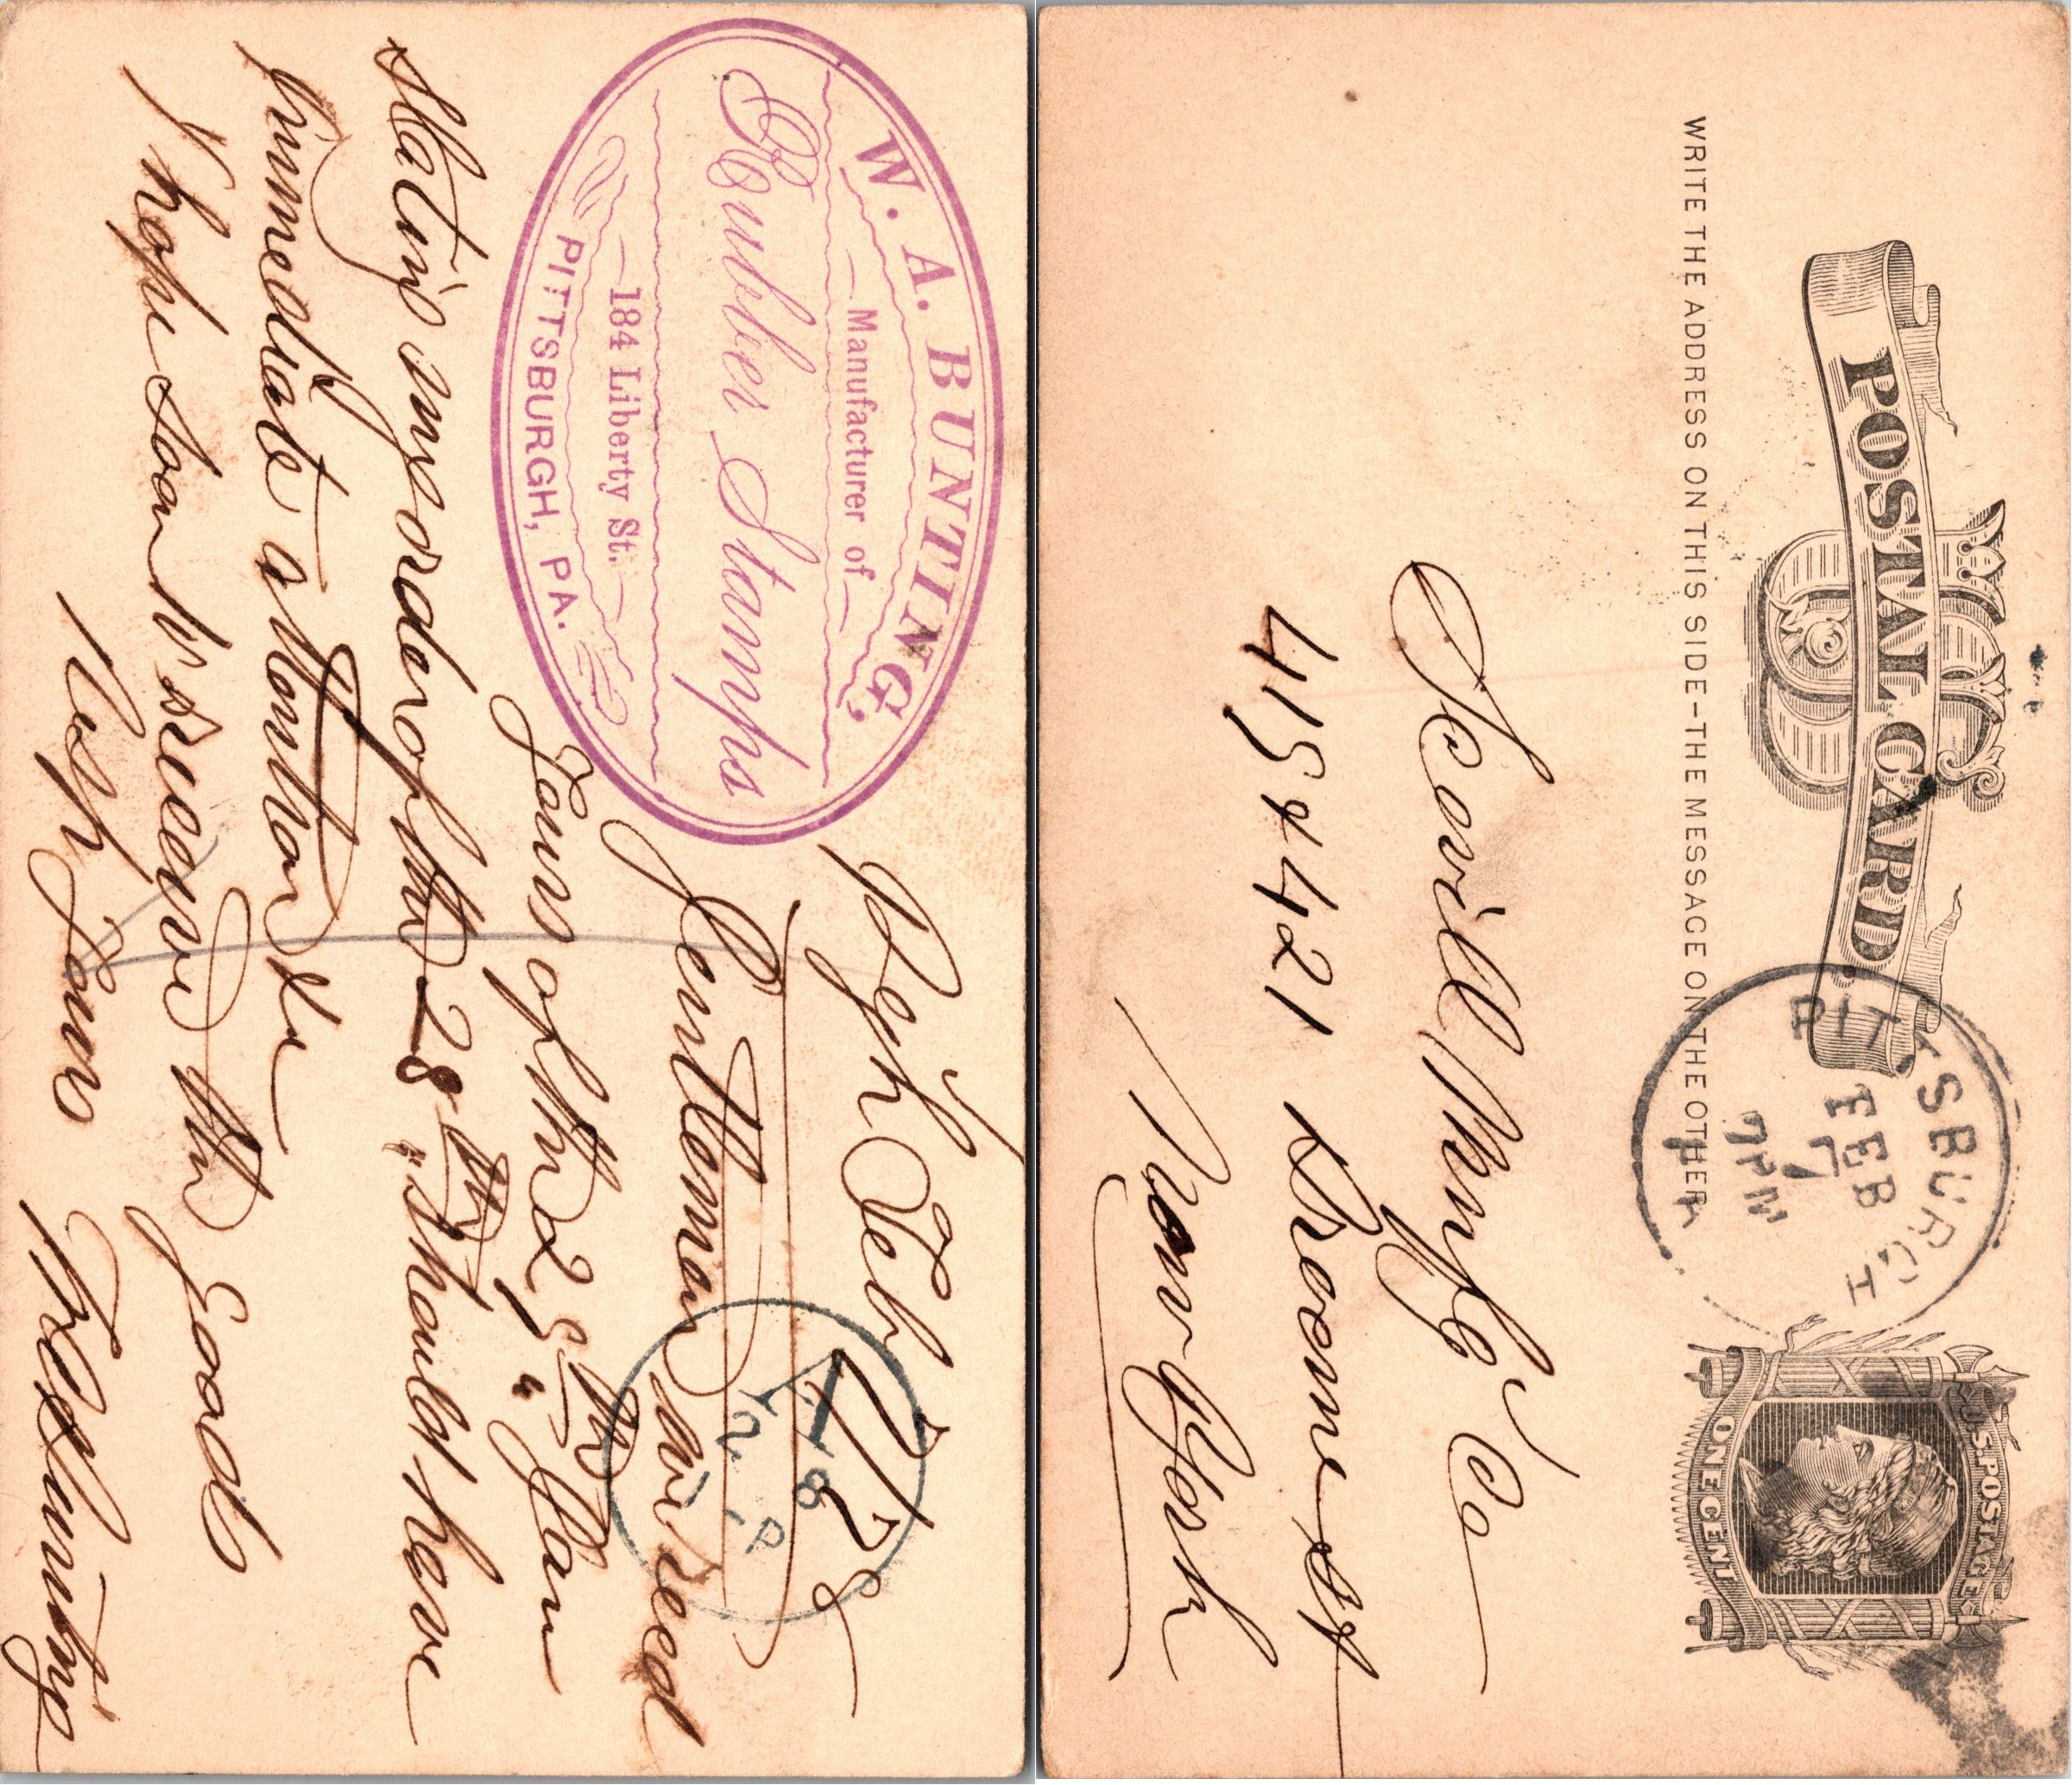 W. A. BUNTING,
Manufacturer of
Rubber Stamps
184 Liberty St.
PITTSBURGH, PA.
Pgh Feb 7/78
Gentlemen we recd
yours of the 29th
stating my order of the 28th should have
immediate attention &c
I hope soon to receive the goods
Resp Yours
POSTAL CARD
WRITE THE ADDRESS ON THIS SIDE-THE MESSAGE ON THE OTHER
PITTSBURGH
FEB
7
7PM
PA
U.S. POSTAGE
ONE CENT
Scovill Mnfg Co
419 & 421 Broome St
New York